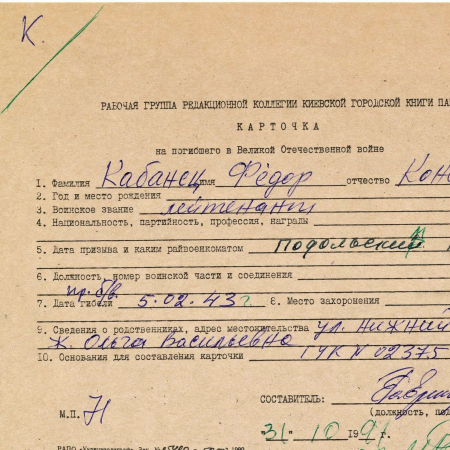 К.
РАБОЧАЯ ГРУППА РЕДАКЦИОННОЙ КОЛЛЕГИИ КИЕВСКОЙ ГОРОДСКОЙ КНИГИ ПА
КАРТОЧКА
на погибшего в Великой Отечественной войне
1. Фамилия Кабанец имя Фёдор отчество Кон
2. Год и место рождения
3. Воинское звание лейтенант
4. Национальность, партийность, профессия, награды
5. Дата призыва и каким райвоенкоматом Подольский
6. Должность, номер воинской части и соединения
пр. б/в.
7. Дата гибели 5.02.43 г. 8. Место захоронения
9. Сведения о родственниках, адрес местожительства ул. Нижний
ж. Ольга Васильевна
10. Основания для составления карточки ГУК N 02375
СОСТАВИТЕЛЬ:
(должность, под
М.П.
"31" 10 1991 г.